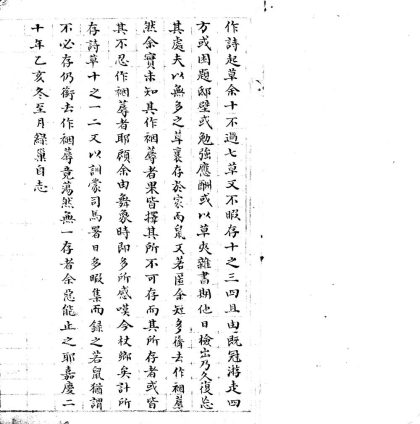 作詩起草余十不過七草又不暇存十之三四且由既冠游走四
方或困題邸壁或勉強應酬或以草夾雜書期他日檢出乃久復忘
其處夫以無多之草裹存於家而鼠又若匿余短多銜去作裀蓐
然余實未知其作裀蓐者果皆擇其所不可存而其所存者或皆
其不忍作裀蓐者耶顧余由舞象時即多所感嘆今杖鄉矣計所
存詩草十之一二又以訓蒙司馬署日多暇集而錄之若鼠猶謂
不必存仍銜去作裀蓐竟蕩然無一存者余惡能止之耶嘉慶二
十年乙亥冬至月綠巢自志